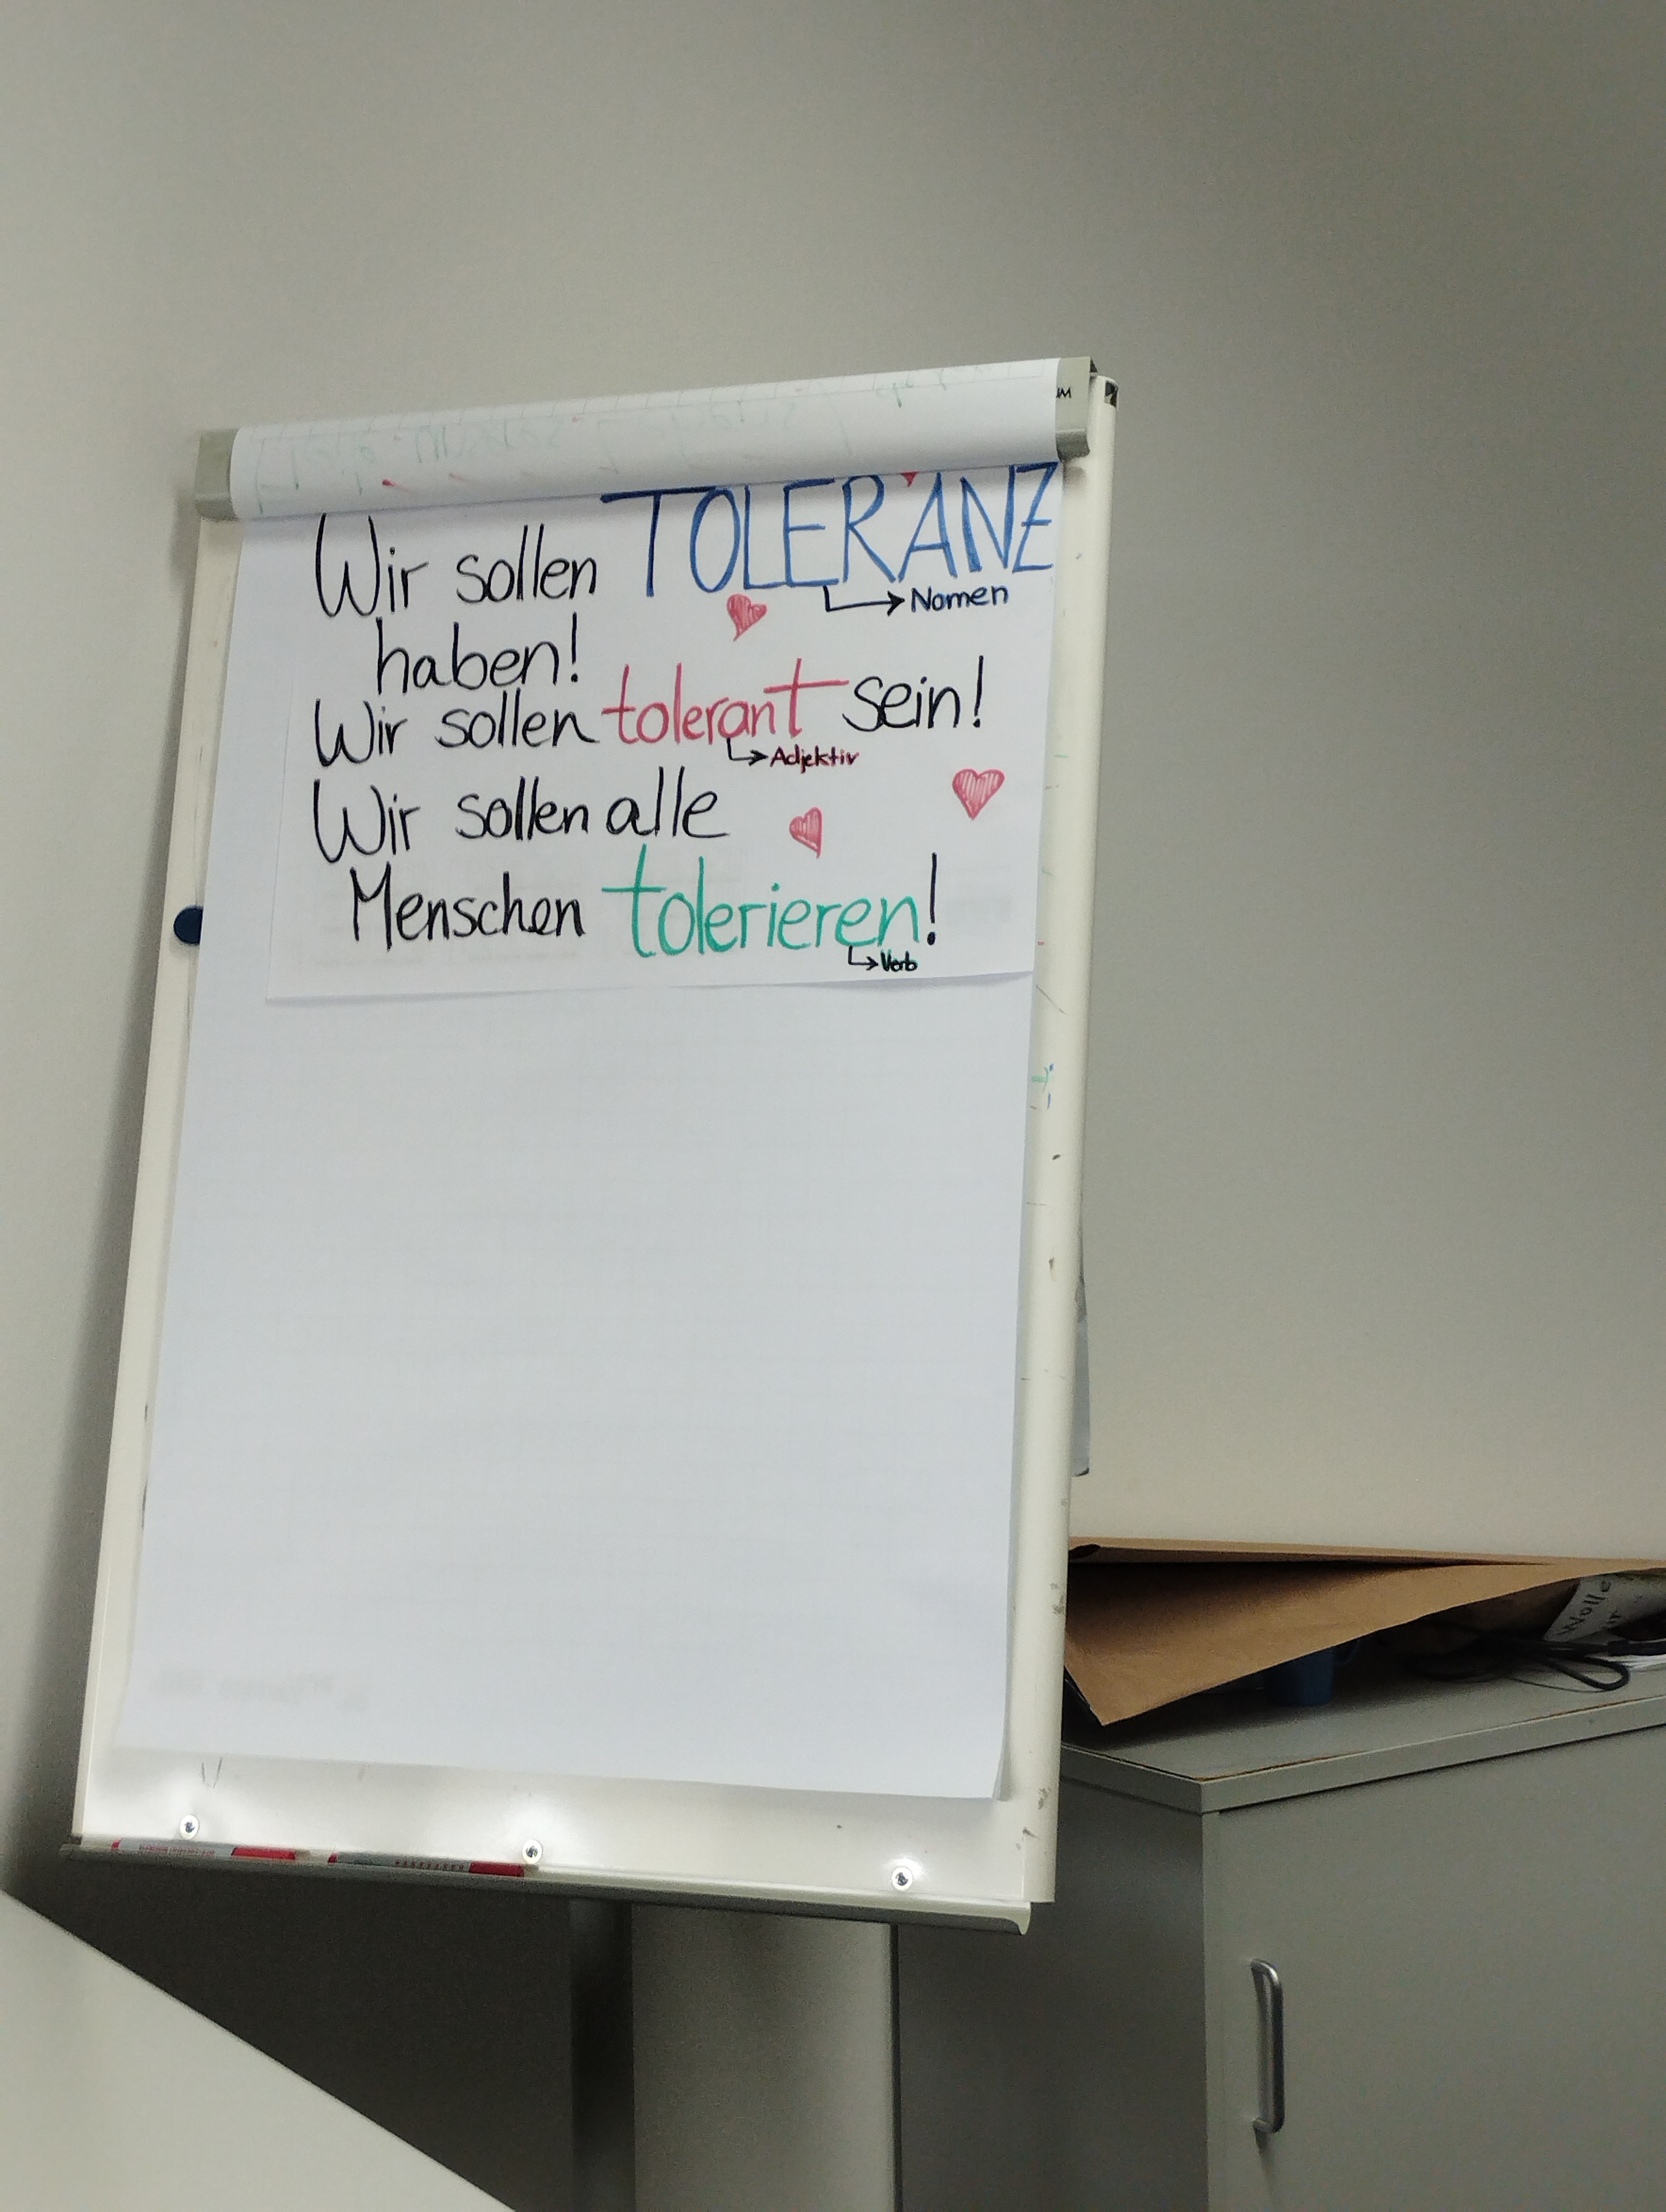 Wir sollen TOLERANZ
Nomen
haben!
Wir sollen tolerant sein!
Adjektiv
Wir sollen alle
Menschen tolerieren!
Verb
Wolle